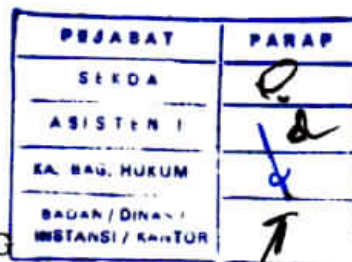 PEJABAT PARAP
SEKDA
ASISTEN I
KA. BAG. HUKUM
BADAN / DINAS /
INSTANSI / KANTOR
G